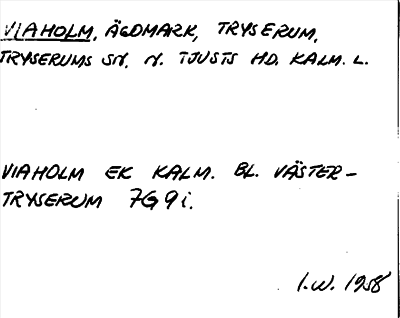 VIAHOLM, ÄGDMARK, TRYSERUM,
TRYSERUMS SN. N. TJUSTS HD. KALM. L.
VIAHOLM EK KALM. BL. VÄSTER-
TRYSERUM 7G9i.
I.W. 1958